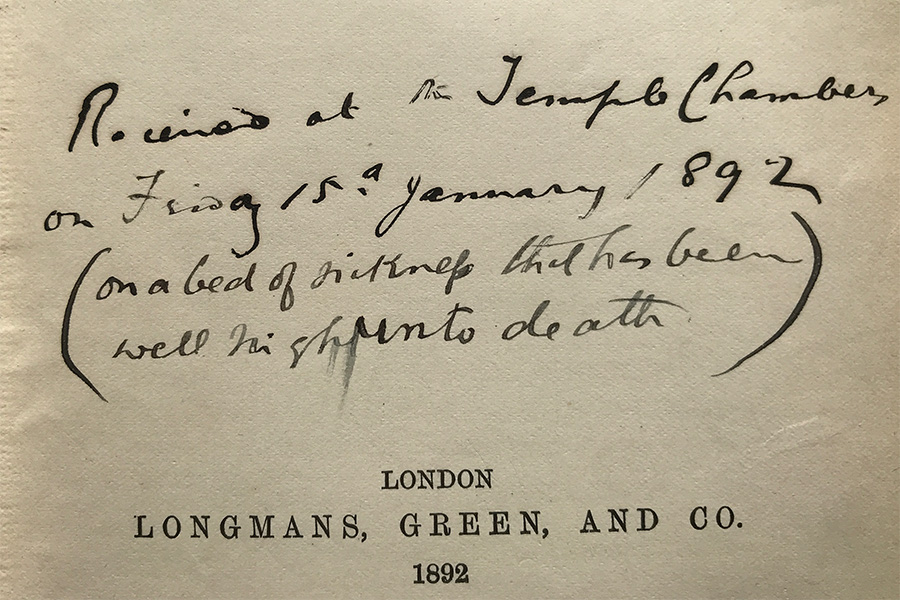 Received at the Temple Chambers
on Friday 15.a January 1892
(on a bed of sickness that has been
well nigh unto death)
LONDON
LONGMANS, GREEN, AND CO.
1892